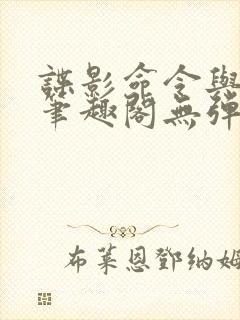 諜影命令與
筆趣閣無彈
布萊恩鄧納姆